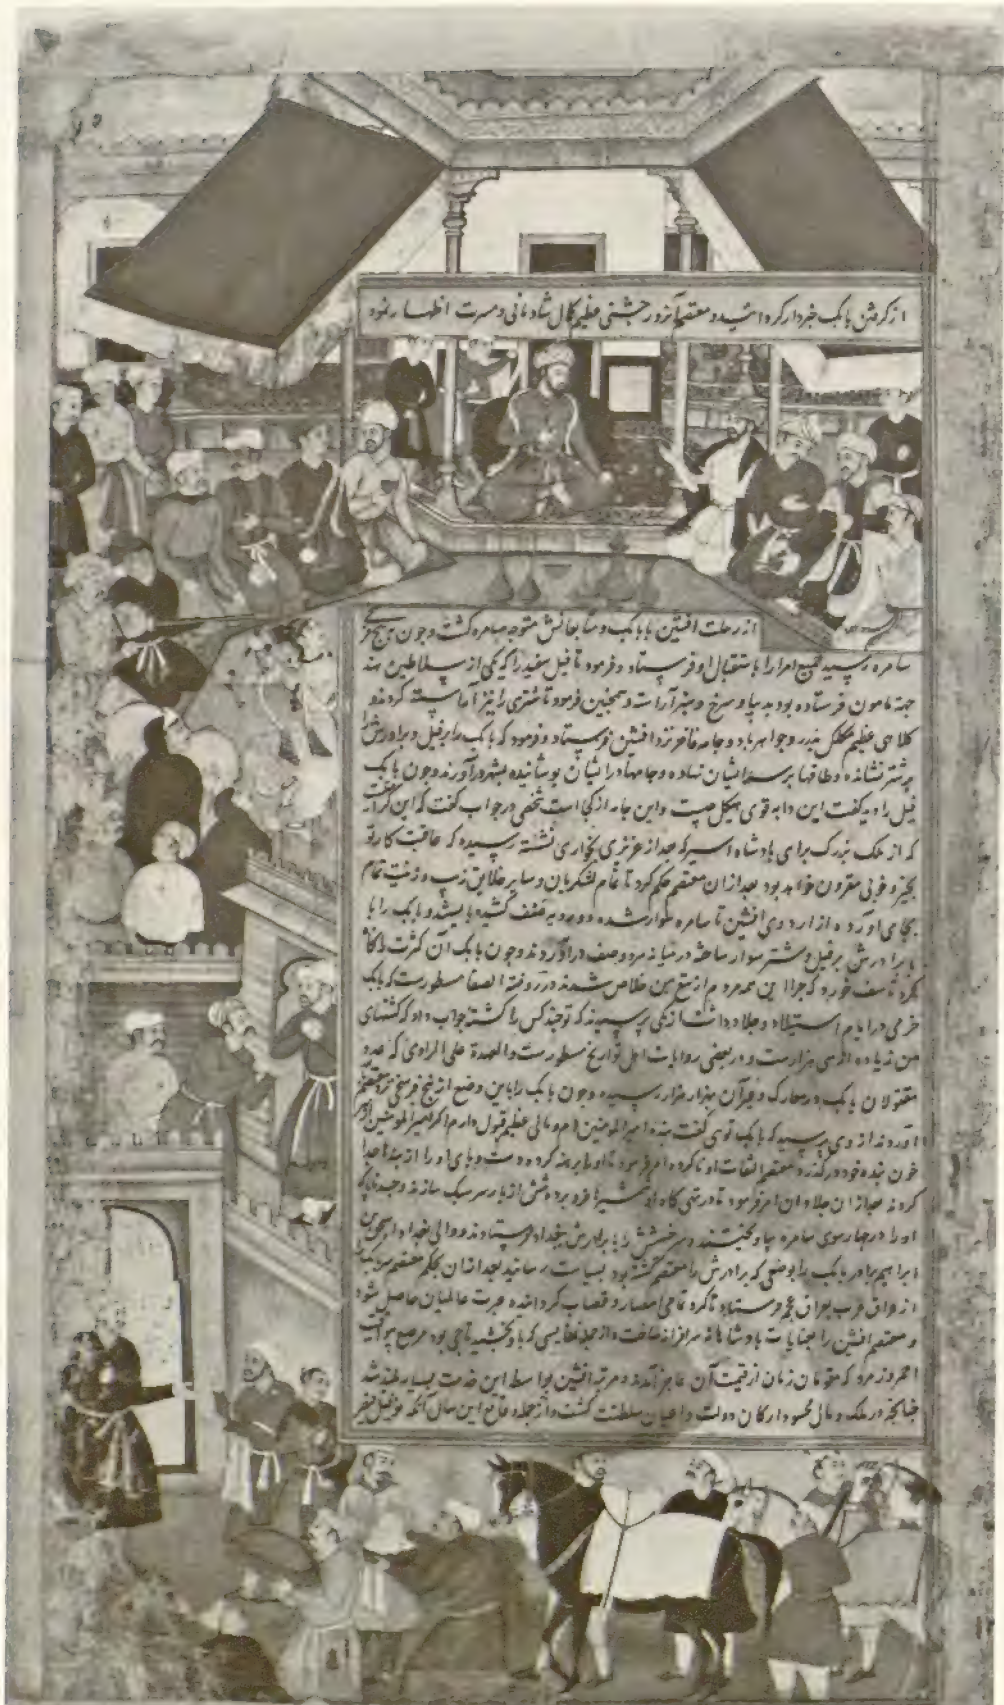 از گرفتن بابک خبردار گردانید و معتصم آنروز جشنی عظیم کمال شادمانی و مسرت اظهار نمود
از رحلت افشین با بابک و متابعانش متوجه سامره گشت و چون
سامره رسید جمیع امرا را باستقبال او فرستاد و فرمود تا فیل سفید را که یکی از سلاطین هند
جهة مامون فرستاده بود بدیبا و سرخ و سبز آراسته و همچنین فرمود تا شتری را نیز آراسته کردند و
کلاهی عظیم مکلل بدر و جواهر با دو جامه فاخر نزد افشین فرستاد و فرمود که بابک را بر فیل و برادرش را
بر شتر نشانده و طاقیها بر سر ایشان نهاده و جامها در ایشان پوشانیده بشهر در آورند و چون بابک
فیل را دید گفت این دابه قوی هیکل چیست و این جامه از کجا است شخصی در جواب گفت که این
که از ملک بزرک برای پادشاه اسیر که بعد از عزیزی بخواری نشسته رسیده که عاقبت کار تو
بخیر و خوبی مقرون خواهد بود بعد از ان معتصم حکم کرد تا تمام لشکریان و سایر خلایق زیب و زینت تمام
بجای آورده از اردوی افشین تا سامره سوار شده دو رویه صف کشیده بایستند و بابک را با
برادرش بر فیل و شتر سوار ساخته در میانه هر دو صف در آوردند و چون بابک آن کثرت
تاسف خورد که چرا این همه مردم از تیغ من خلاص شدند در روضة الصفا مسطورست که بابک
خرمی در ایام استیلا ده جلاد داشت از یکی پرسیدند که تو چند کس را کشته جواب داد که کشتهای
من زیاده از سی هزارست و در بعضی روایات اهل تواریخ مسطورست والعهدة علی الراوی که عدد
مقتولان بابک در معارک و غیر آن بهزار هزار رسیده و چون بابک را باین وضع نزد معتصم
آوردند از وی پرسید که بابک توی گفت بنده امیر المومنین ام و مالی عظیم قبول دارم اگر امیر المومنین از
خون بنده خود در گذرد معتصم التفات او ناکرده امر فرمود تا او را برهنه کرده دست و پای او را از بند جدا
کردند بعد از ان جلاد را امر فرمود تا در تهی گاه او
او را در چار سوی سامره بیاویختند و سرش را با برادرش ببغداد فرستادند و والی بغداد اسحق بن
ابراهیم برادر بابک را بوضعی که برادرش را معتصم کشته بود بسیاست رسانید بعد از ان بحکم معتصم سر بابک
از عراق عرب بعراق عجم فرستاد تا گرد تمامی امصار و قصبات گردانده عبرت عالمیان حاصل شود
و معتصم افشین را بعنایات پادشاهانه سرافراز ساخت و از جمله نفایسی که باو بخشید تاجی بود مرصع بیواقیت
احمر و زمرد که مقومان زمان از قیمت آن عاجز آمدند و مرتبه افشین بواسطه این خدمت بسیار بلند شد
چنانچه در ملک و مالی محسود ارکان دولت و اعیان سلطنت گشت و از جمله وقایع این سال آنکه